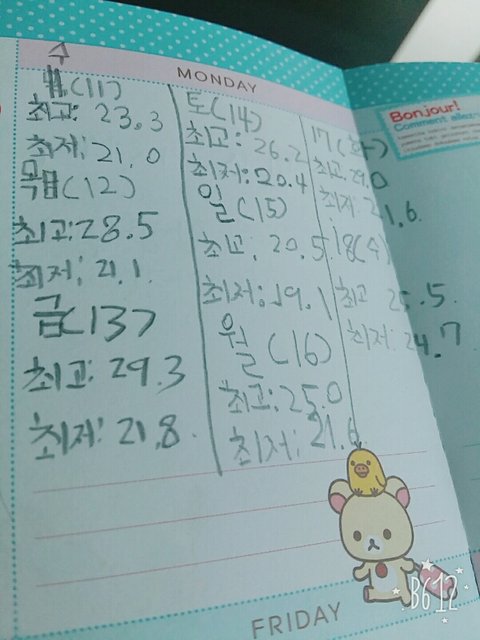 MONDAY
수
(11)
최고: 23.3
최저: 21.0
목(12)
최고: 28.5
최저: 21.1
금(13)
최고: 29.3
최저: 21.8
토(14)
최고: 26.2
최저: 20.4
일(15)
최고: 20.5
최저: 19.1
월(16)
최고: 25.0
최저: 21.6
17(화)
최고: 29.0
최저: 21.6
18(수)
최고 25.5
최저: 24.7
Bonjour!
FRIDAY
B612